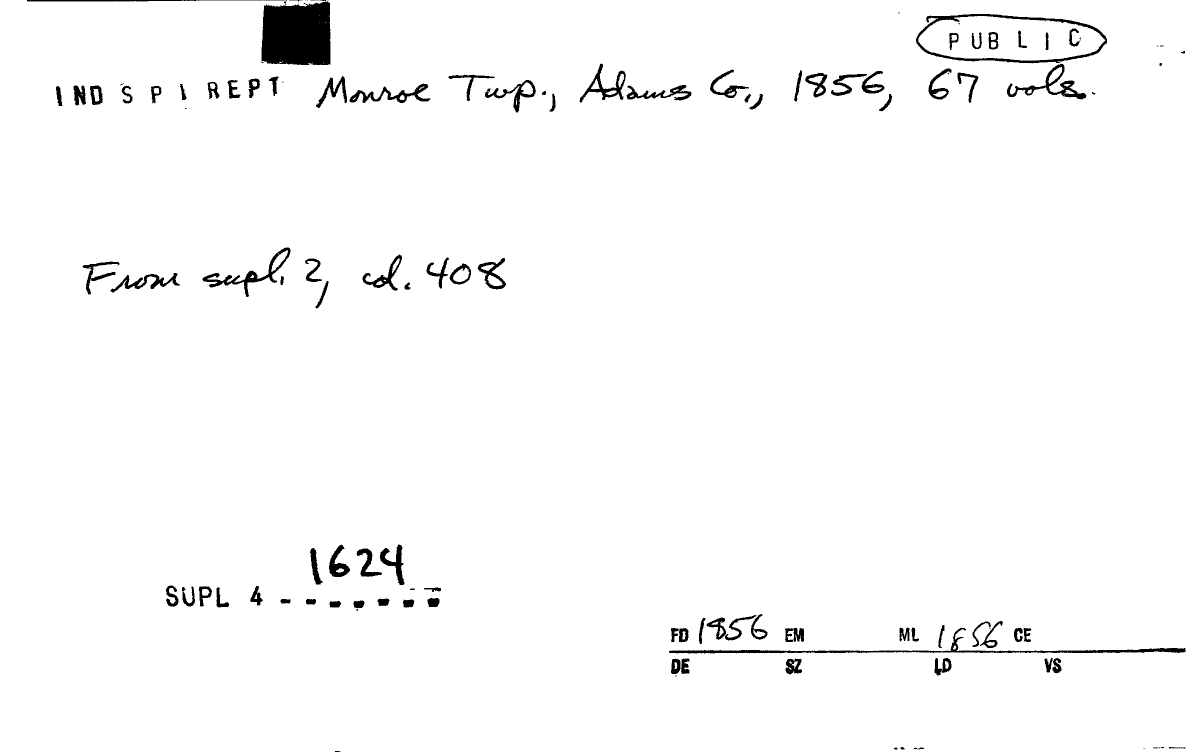 PUBLIC
IND SPI REPT Monroe Twp., Adams Co., 1856, 67 vols.
From supl. 2, col. 408
1624
SUPL 4 - - - - - - -
FD 1856 EM ML 1856 CE
DE SZ LD VS